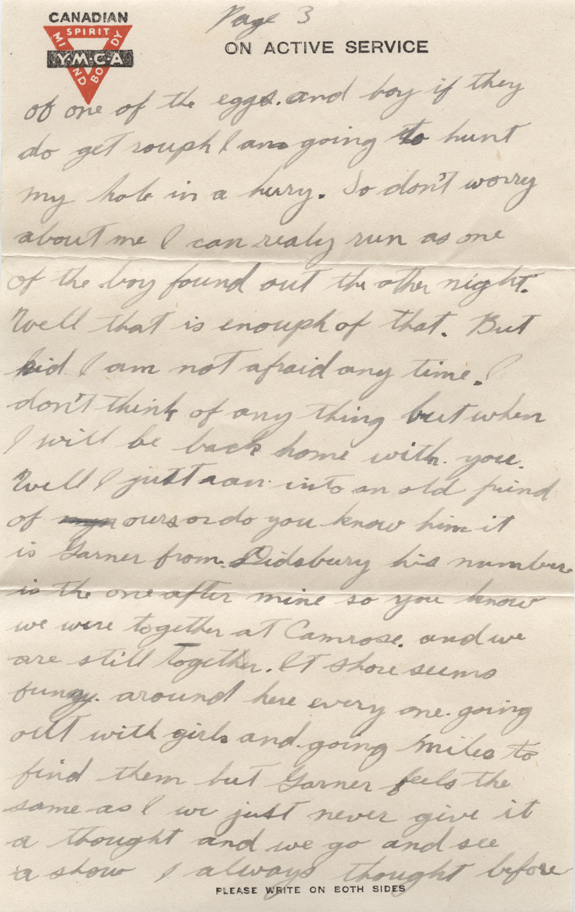 Page 3
CANADIAN
SPIRIT
Y·M·C·A
MIND BODY
ON ACTIVE SERVICE
of one of the eggs. and boy if they
do get rouph I am going to hunt
my hole in a hury. So don't worry
about me I can realy run as one
of the boy found out the other night.
Well that is enouph of that. But
kid I am not afraid any time. I
don't think of any thing but when
I will be back home with you.
Well I just ran into an old friend
of ours or do you know him it
is Garner from Didsbury his number
is the one after mine so you know
we were together at Camrose. and we
are still together. It shore seems
around here every one going
out with girls and going miles to
find them but Garner feels the
same as I we just never give it
a thought and we go and see
a show I always thought before
PLEASE WRITE ON BOTH SIDES